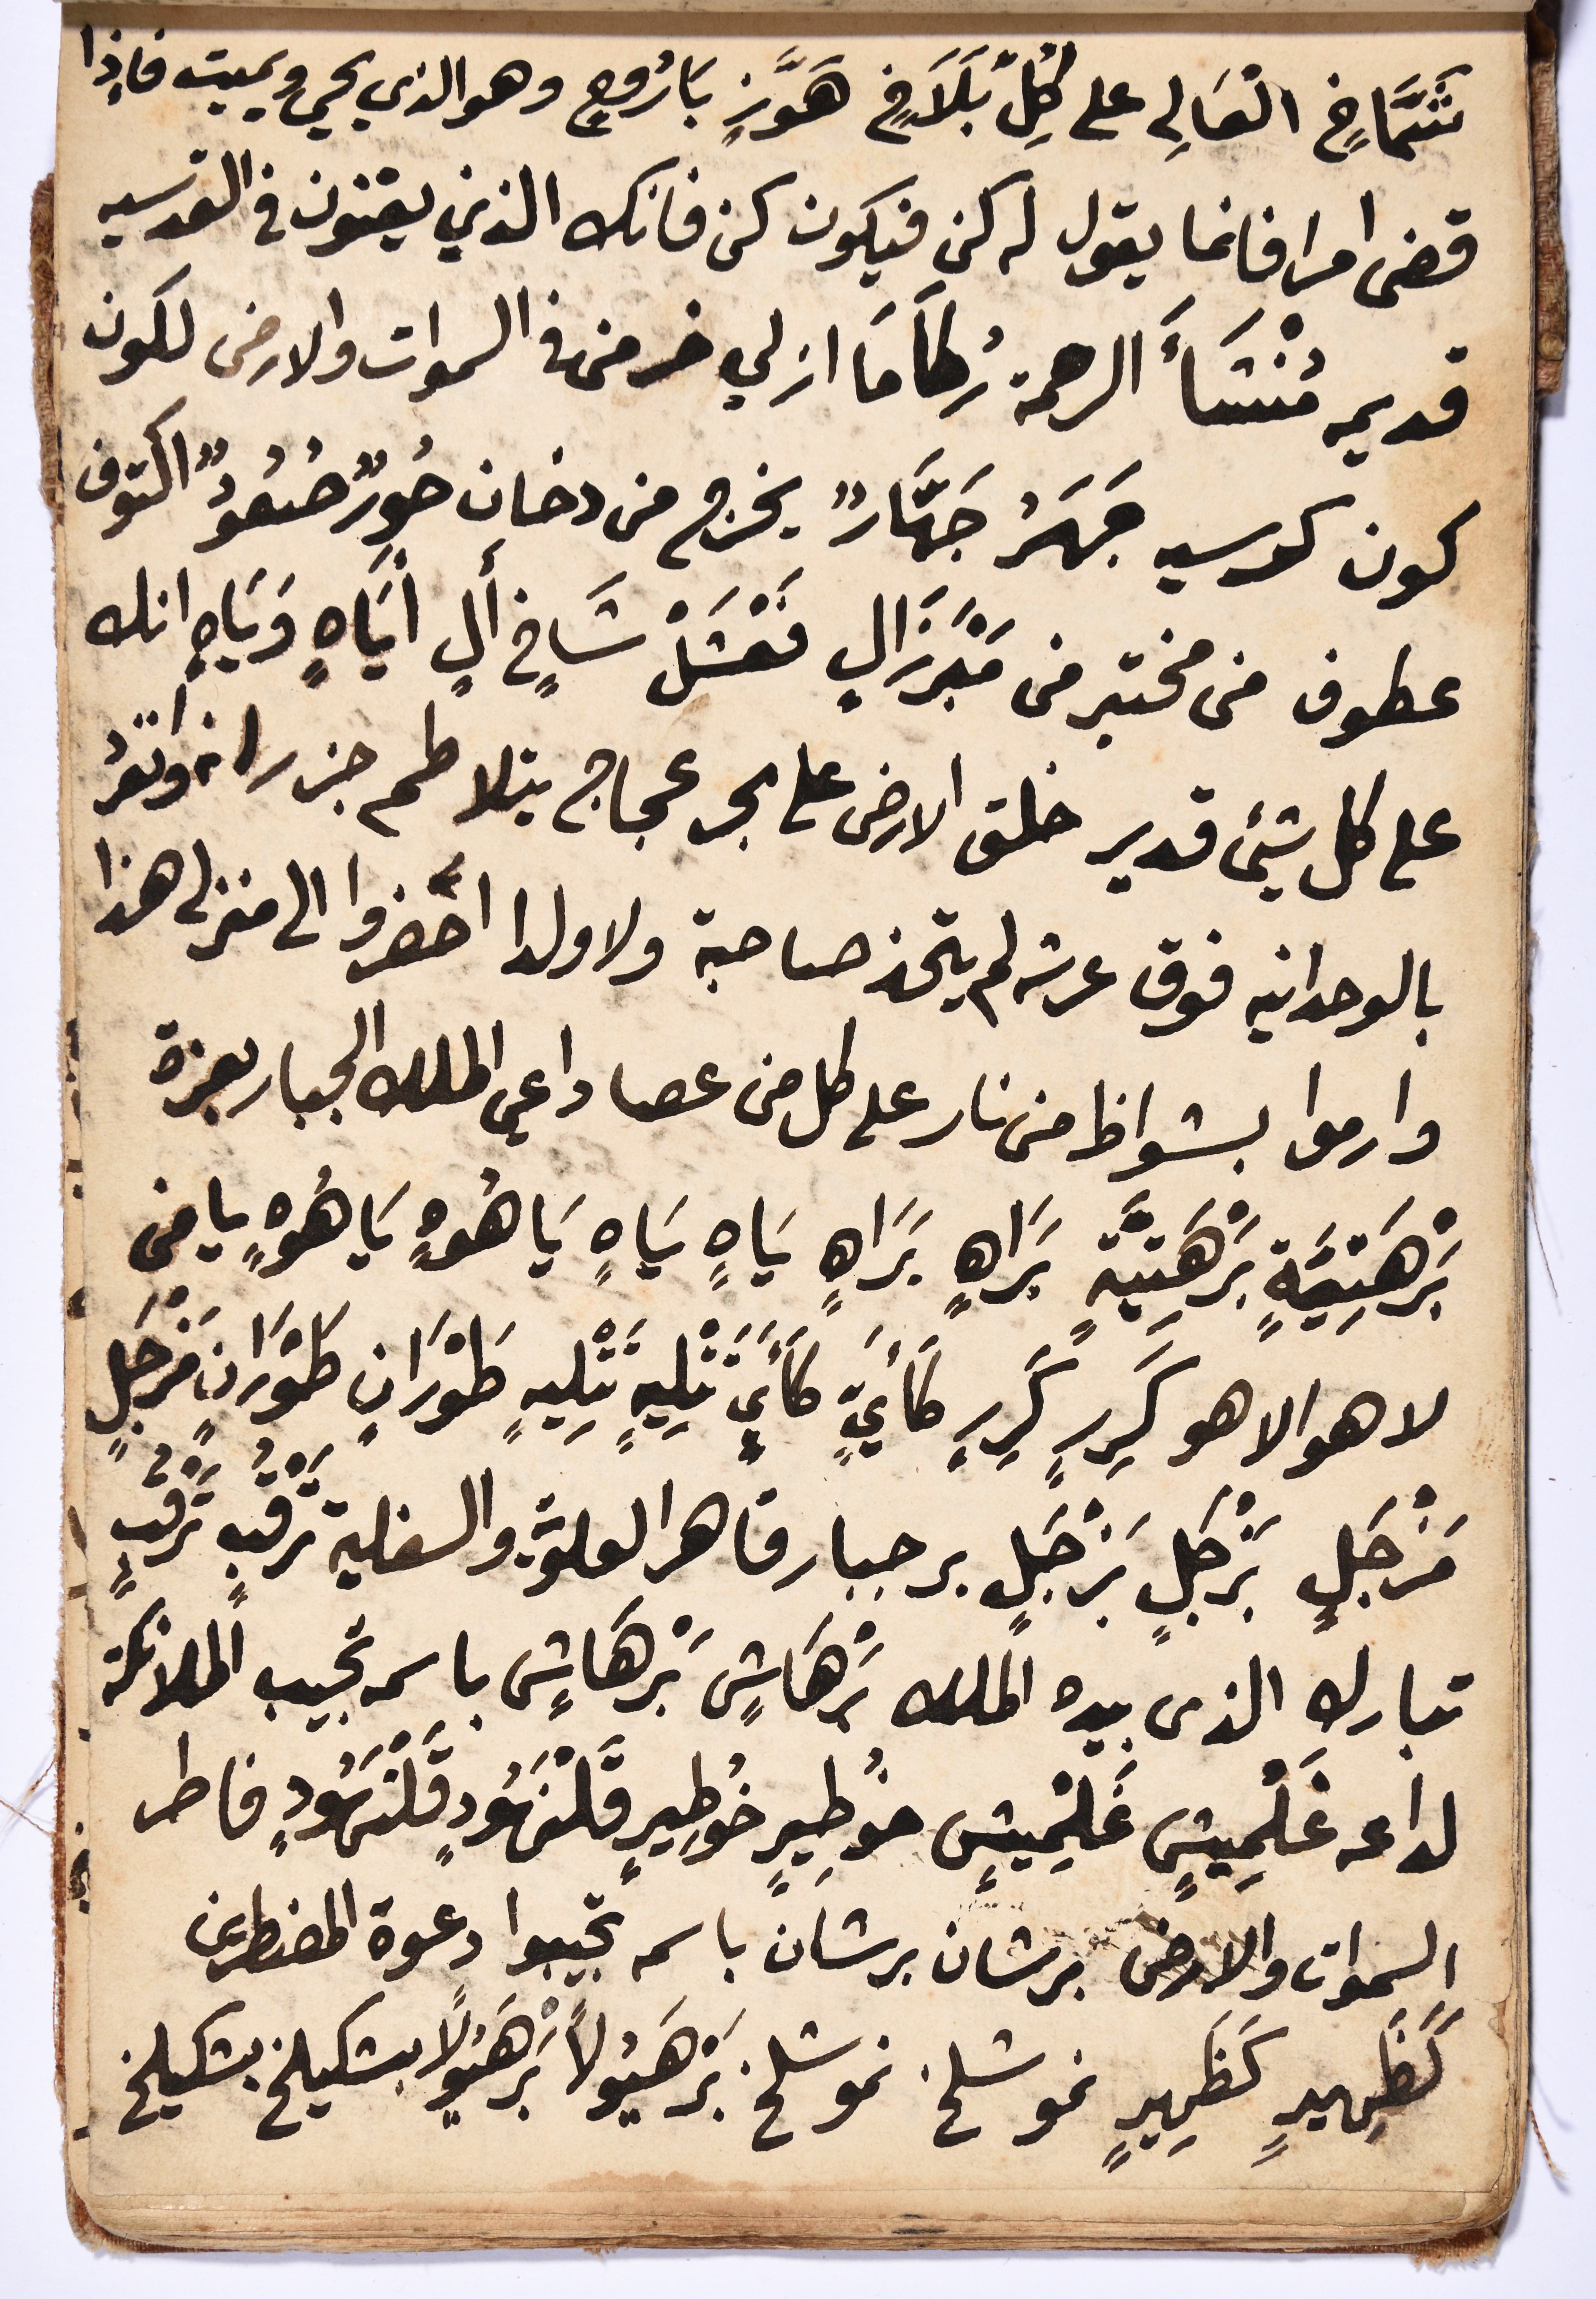 شَمَّاخٍ العَالِي على كُلِّ بَلَاخٍ هَوَّزٍ بَارُوخٍ وهو الذي يحي ويميت فاذا
قضى امرا فانما يقول له كن فيكون كن فانك الذين يقنون في القدسيه
قديمه مُنْشَأَ الرحمة رُكَامَا ازلي خر من في السموات والارض لكون
كون كدسيه جَهَرُ جَهَّارً يخرج من دخان حُورٌ صُعُودٌ اكتوف
عطوف من مختبر من مَبْزَالٍ فَعْشَلْ شَاخٍ أَلٍ أيَاهٍ وَيَاهٍ انك
على كل شيئ قدير خلق الارض على بحر عجاج يتلاطم جزرانه واتقر
بالوحدانيه فوق عرشه لم يتخذ صاحبة ولا ولدا احضروا الى منزلي هذا
وارموا بشواظ من نار على كل من عصا داعي الملك الجبار بعزة
بَرْهَتِيَةٍ بَرْهَتِيَّةٍ بَرَاهٍ بَرَاهٍ يَاهٍ يَاهٍ يَا هُوْهٍ يَا هُوْهٍ يا من
لا هو الا هو كَرِرٍ كَرِرٍ كَأَيٍّ كَأَيٍ تَتْلِيهٍ تَتْلِيهٍ طَوْرَانٍ طَوْرَانٍ مَزْجَلٍ
مَزْجَلٍ بَزْجَلٍ بَزْجَلٍ برجبار قاهر العلويه والسفلية تَرْقُبٍ تَرْقُبٍ
تبارك الذى بيده الملك بَرْهَاشٍ بَرْهَاشٍ باسمه تجيب الملائكة
لداعه غَلْمِيشٍ غَلْمِيشٍ خُوطِيرٍ خُوطِيرٍ قَلْنَهُودٍ قَلْنَهُودٍ فاطر
السموات والارض برشان برشان باسمه تجيبوا دعوة المضطرين
كَظَهِيرٍ كَظَهِيرٍ نموشلخ نموشلخ بَرْهَيُولاً بَرْهَيُولاً بشكيلخ بشكيلخ